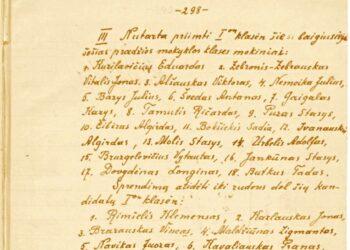 -298-
III Nutarta priimti I klasėn šie: baigiusius
šešias pradžios mokyklos klases mokiniai:
1. Eduardas 2. Zebronis-Zebrauskas
Vitalis Jonas, 3. Ališauskas Viktoras, 4. Nemeika Julius,
5. Barys Julius, 6. Švedas Antanas, 7. Gaigalas
Kazys, 8. Tamulis Ričardas, 9. Puzas Stasys,
10. Žiberas Algirdas, 11. Sadia, 12. Ivanausk
Algirdas, 13. Molis Stasys, 14. Urbelis Adolfas,
15. Vytautas, 16. Jankūnas Stasys,
17. Dovydėnas Longinas, 18. Butkus Tadas.
Sprendimą atidėti iki rudens dėl šių kan-
didatų I klasėn:
1. Klemensas, 2. Karlauskas Jonas,
3. Brazauskas 4. Maldžiūnas Zigmantas,
5. Navikas Juozas, 6. Pranas